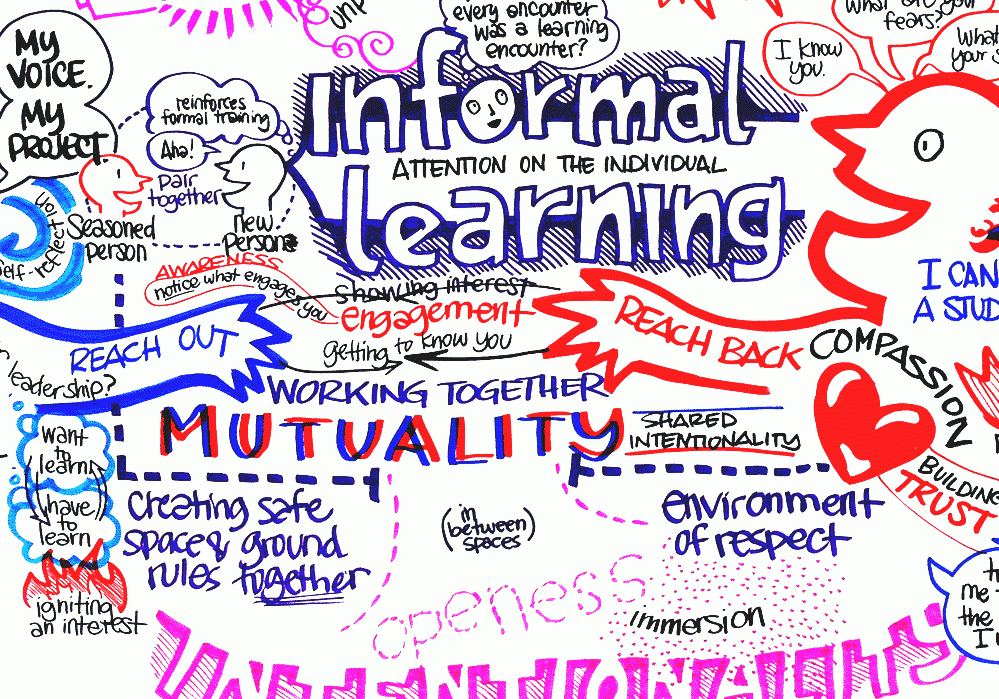 MY
VOICE.
MY
PROJECT.
every encounter
was a learning
encounter?
I know
you.
fears?
What
your
reinforces
formal training
Aha!
pair
together
Seasoned
person
new
person
self-reflection
Informal
ATTENTION ON THE INDIVIDUAL
learning
I CAN
A STUD
AWARENESS
notice what engages you
showing interest
engagement
getting to know you
REACH OUT
REACH BACK
WORKING TOGETHER
MUTUALITY
SHARED
INTENTIONALITY
COMPASSION
BUILDING
TRUST
leadership?
want
to
learn
(have)
to
learn
igniting
an interest
Creating safe
space & ground
rules together
(in
between
spaces)
environment
of respect
openess
immersion
me
the
I
INTENTIONALITY